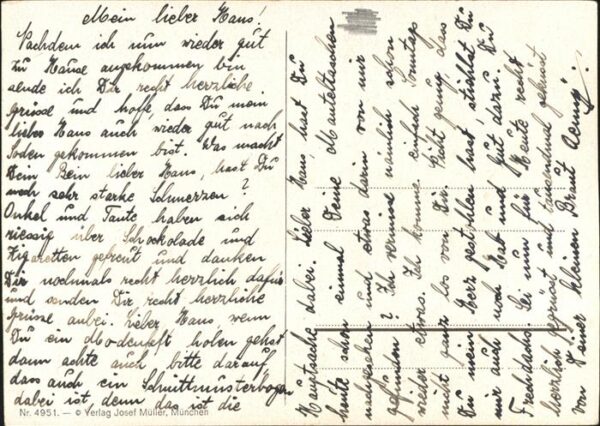 Mein lieber Hans!
Nachdem ich nun wieder gut
zu Hause angekommen bin
sende ich Dir recht herzliche
Grüsse und hoffe, dass Du mein
lieber Hans auch wieder gut nach
Soden gekommen bist. Was macht
Dein Bein lieber Hans, hast Du
noch sehr starke Schmerzen?
Onkel und Tante haben sich
riessig über Schockolade und
Zigaretten gefreut und danken
Dir nochmals recht herzlich dafür
und senden Dir recht herzliche
Grüsse anbei. Lieber Hans, wenn
Du ein Modenheft holen gehst
dann achte auch bitte darauf
dass auch ein Schnittmusterbogen
dabei ist, denn das ist die
Nr. 4951. — © Verlag Josef Müller, München
Hauptsache dabei. Lieber Hans, hast Du
heute schon einmal Deine Manteltaschen
nachgesehen und etwas darin von mir
gefunden? Ich vermisse nämlich schon
wieder etwas. Ich komme einfach Sonntags
nicht ganz los von Dir. Nicht genug dass
Du mein Herz gestohlen hast, stiehlst Du
mir auch noch Hab und Gut dazu. Du
Frechdachs. Sei nun für Heute recht
herzlich gegrüsst und tausendmal geküsst
von Deiner kleinen Braut